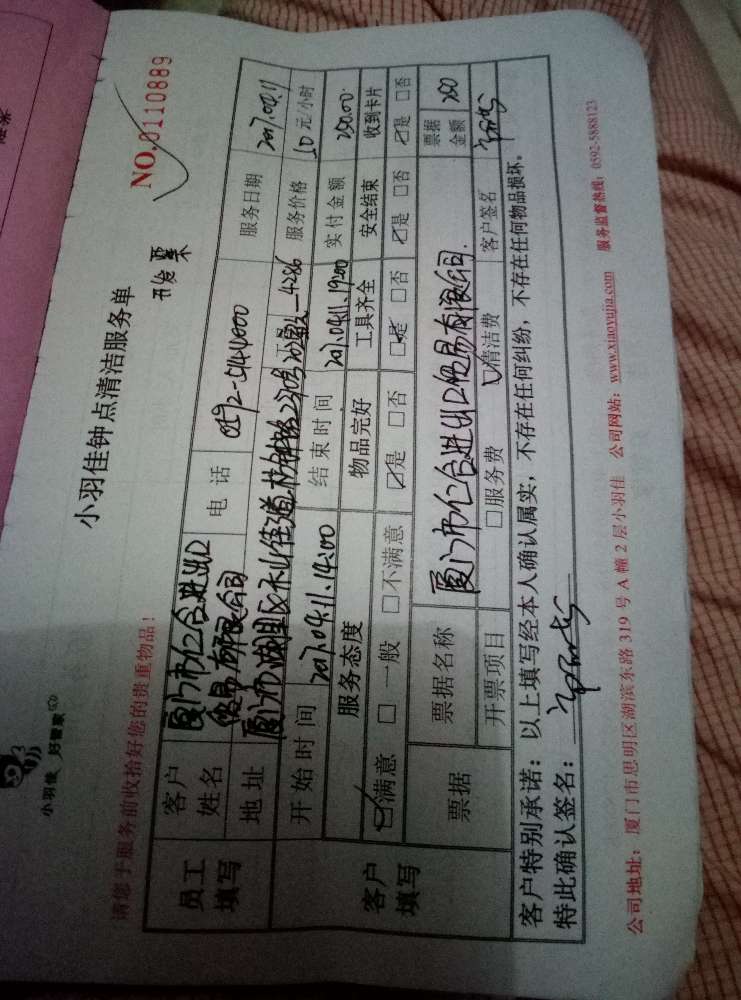 小羽佳 好管家
小羽佳钟点清洁服务单
NO.0110889
请您于服务前收拾好您的贵重物品！
开发票
员工填写
客户姓名 厦门市仁合进出口贸易有限公司 电话 0592-5144000 服务日期 2017.04.11
地址 厦门市湖里区禾山街道枋钟路 服务价格 50元/小时
开始时间 2017.04.11.14:00 结束时间 2017.04.11.19:00 实付金额 250.00
客户填写
服务态度 物品完好 工具齐全 安全结束 收到卡片
☑满意 □一般 □不满意 ☑是 □否 ☑是 □否 ☑是 □否 ☑是 □否
票据 票据名称 厦门市仁合进出口贸易有限公司. 票据金额 250
开票项目 □服务费 ☑清洁费 客户签名
客户特别承诺：以上填写经本人确认属实，不存在任何纠纷，不存在任何物品损坏。
特此确认签名：
公司地址：厦门市思明区湖滨东路319号A幢2层小羽佳 公司网站：www.xiaoyujia.com 服务监督热线：0592-5888123